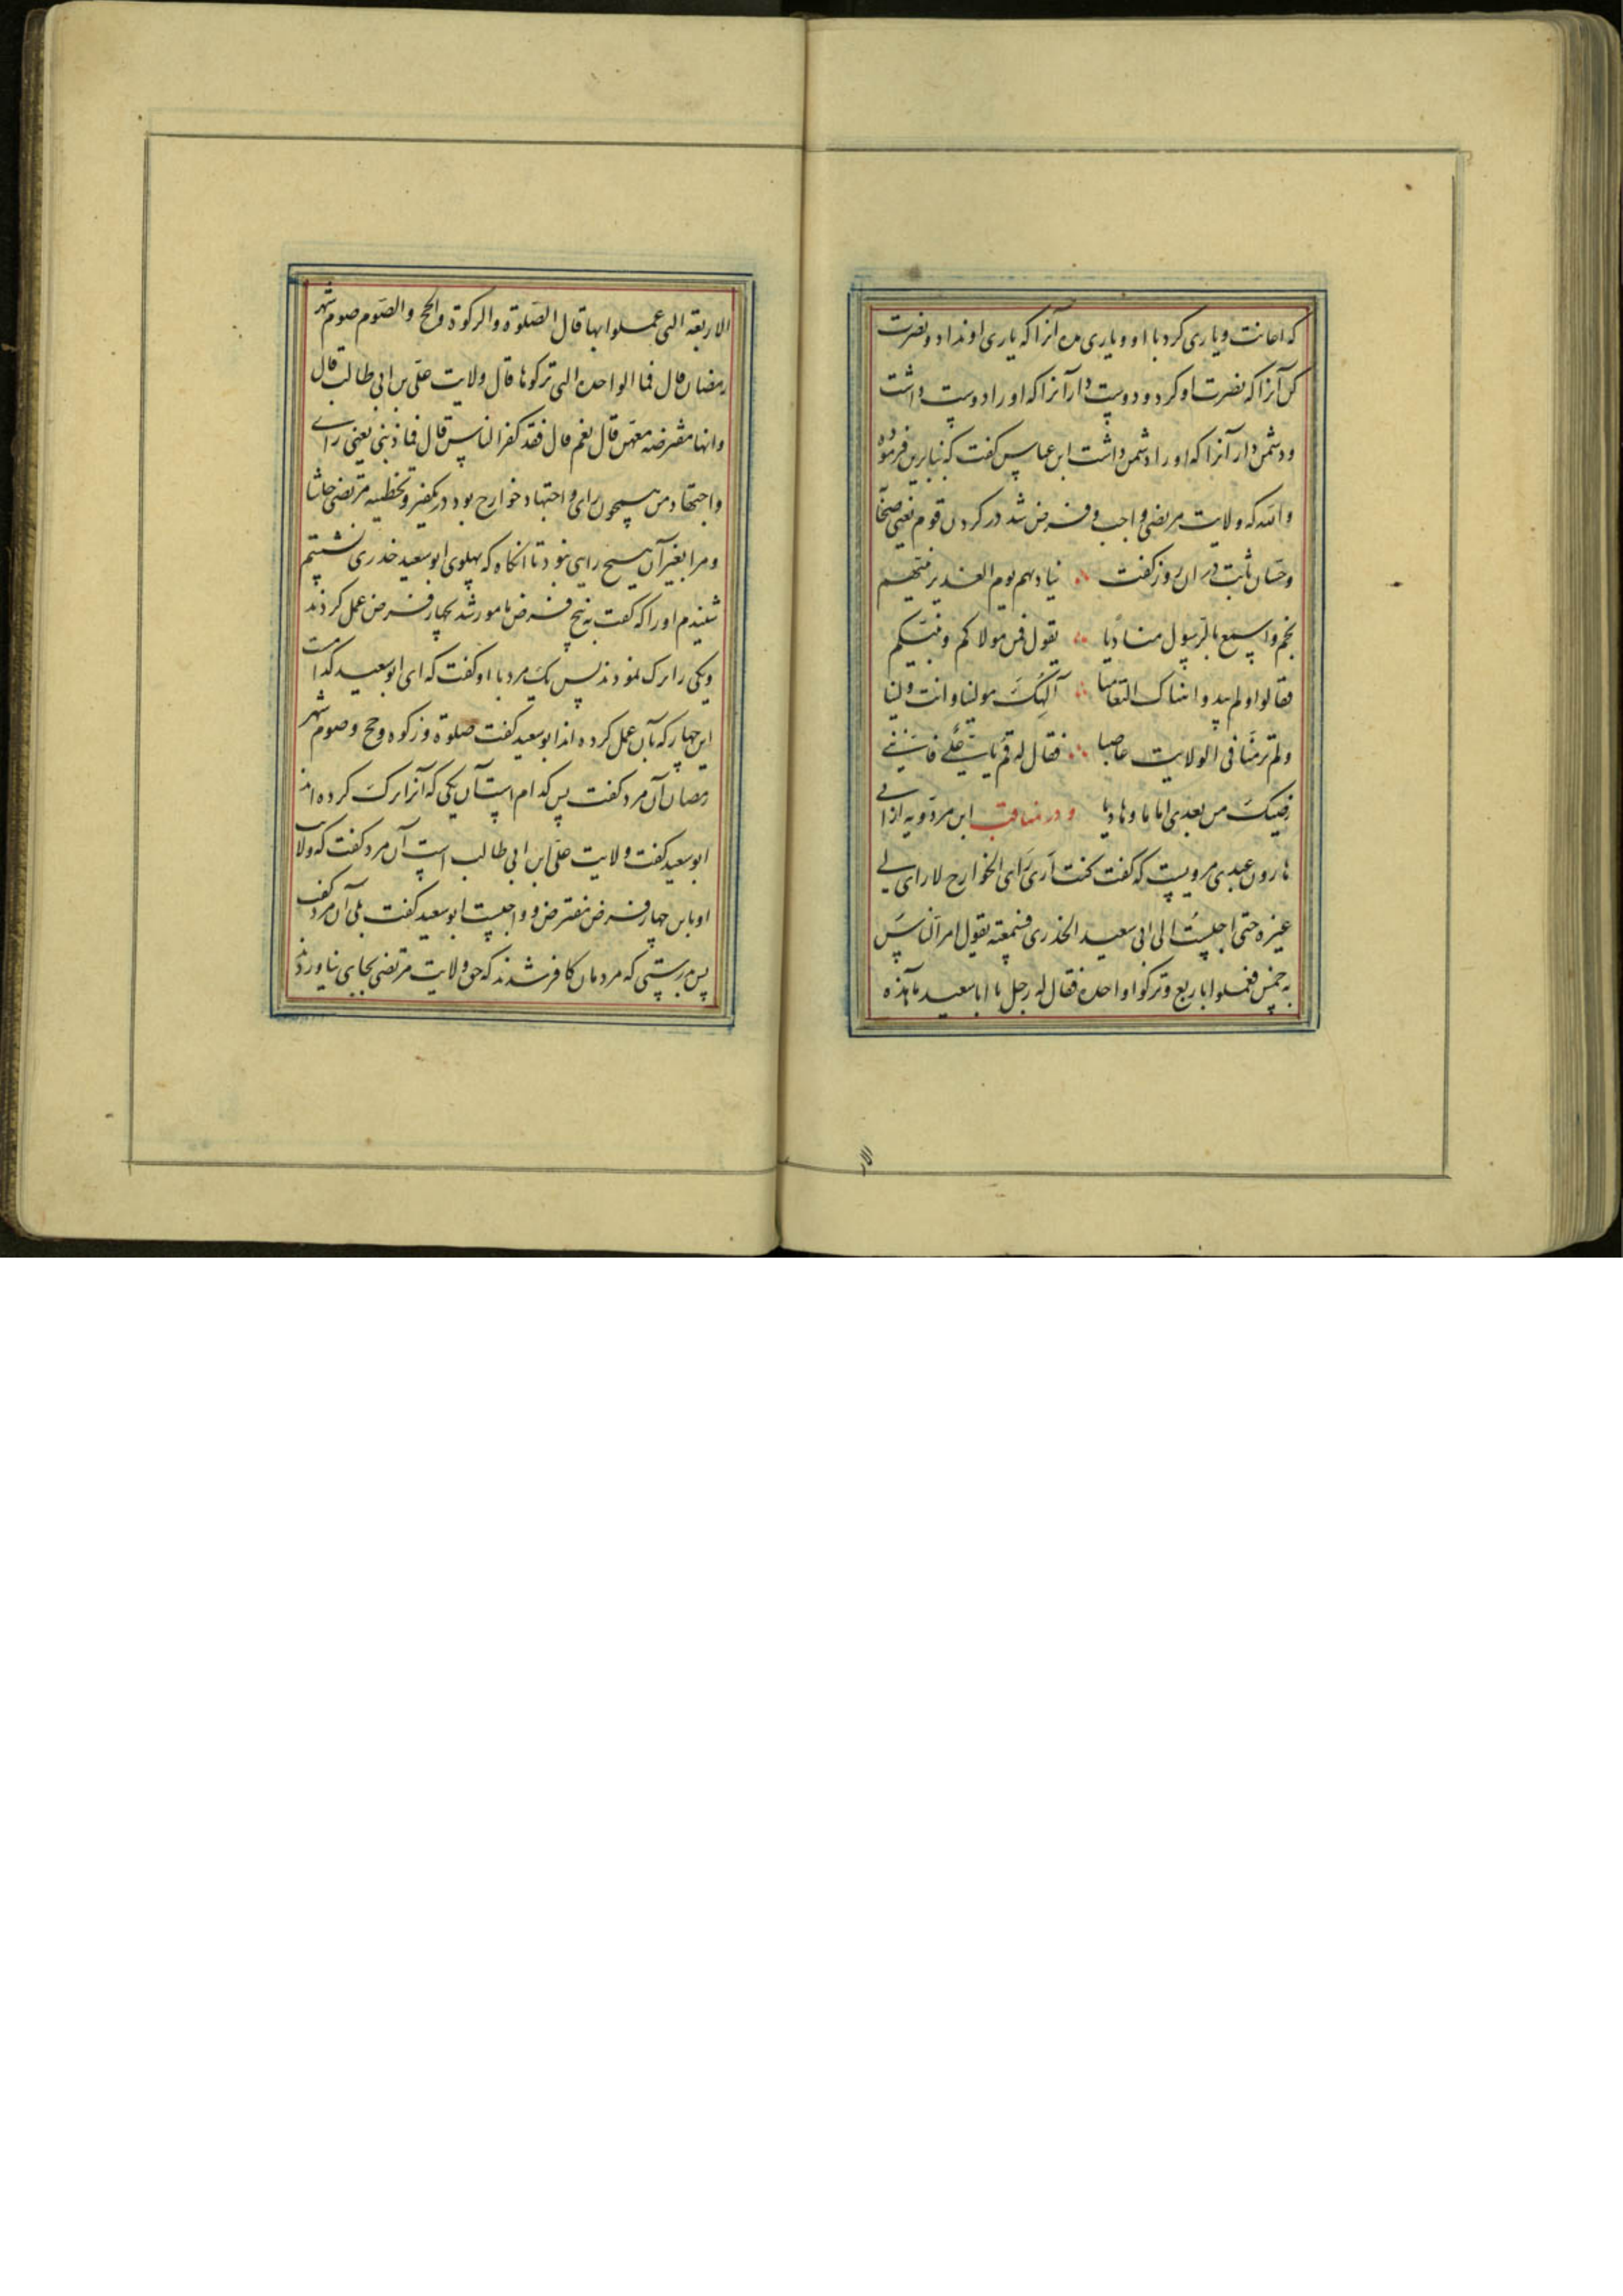 که اعانت و یاری کرد با او و یاری مده آنرا که یاری او نداد و نصرت
کن آنرا که نصرت او کرد و دوست دار آنرا که او را دوست داشت
و دشمن دار آنرا که او را دشمن داشت ابن عباس گفت که بنابرین فرموده
والله که ولایت مرتضی واجب و فرض شد در گردن قوم یعنی صحابه
و حسان ثابت در آن روز گفت ؞ ینادیهم یوم الغدیر نبیهم
بخم واسمع بالرسول منادیا ؞ یقول فمن مولاکم و نبیکم
فقالوا و لم یبدوا هناک التعامیا ؞ الهک مولینا و انت ولینا
و لم تر منا فی الولایت عاصیا ؞ فقال له قم یا علی فاننی
رضیتک من بعدی اماما و هادیا و در مناقب ابن مردویه از ابی
هارون عبدی مرویست که گفت کنت اری رای الخوارج لا رای لی
غیره حتی اجلست الی ابی سعید الخدری فسمعته یقول امر الناس
بخمس فعملوا باربع و ترکوا واحدة فقال له رجل یا ابا سعید ما هذه
الا
الاربعة التی عملوا بها قال الصلوة والزکوة والحج والصوم صوم شهر
رمضان قال فما الواحدة التی ترکوها قال ولایت علی بن ابی طالب قال
وانها مفترضة معهن قال نعم قال فقد کفر الناس قال فما ذنبی یعنی رای
و اجتهاد من همچون رای و اجتهاد خوارج بود در تکفیر و تخطیه مرتضی حاشا
و مرا بغیر آن هیچ رایی نبود تا آنکاه که پهلوی ابوسعید خدری نشستم
شنیدم او را که گفت به پنج فرض مامور شد بچهار فرض عمل کردند
و یکی را ترک نمودند پس یک مرد با او گفت که ای ابوسعید کدامست
این چهار که بآن عمل کرده اند ابوسعید گفت صلوة و زکوه و حج و صوم شهر
رمضان آن مرد گفت پس کدام است آن یکی که آنرا ترک کرده اند
ابوسعید گفت ولایت علی ابن ابی طالب است آن مرد گفت که ولایت
او با این چهار فرض مفترض و واجبست ابوسعید گفت بلی آن مرد گفت
پس بدرستی که مردمان کافر شدند که حق ولایت مرتضی بجای نیاوردند